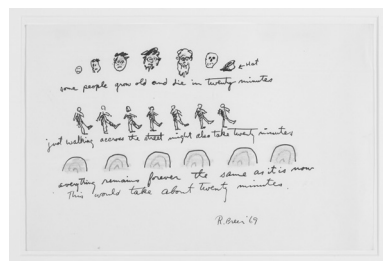 ← Hat
some people grow old and die in twenty minutes
just walking accross the street might also take twenty minutes
everything remains forever the same as it is now
this would take about twenty minutes.
R. Breer '69